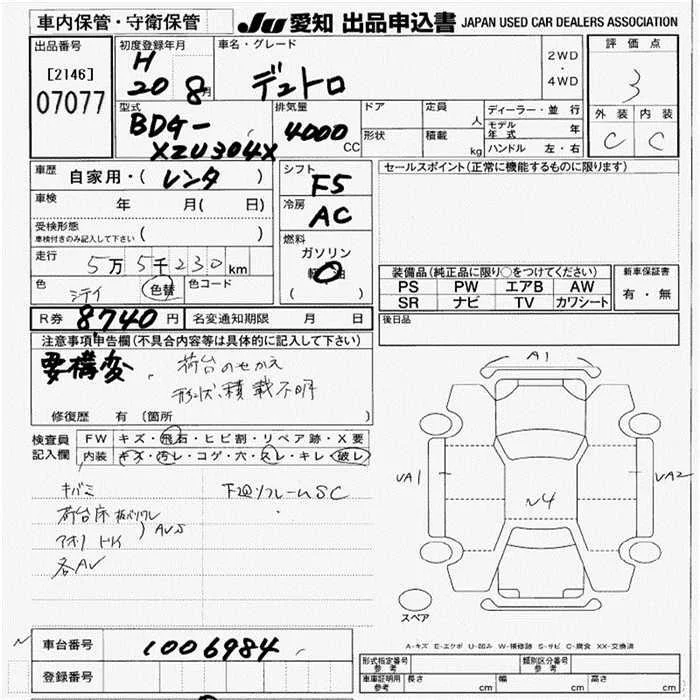 車内保管・守衛保管
JU 愛知 出品申込書 JAPAN USED CAR DEALERS ASSOCIATION
出品番号
[2146]
07077
初度登録年月
H
20 8月
車名・グレード
デュトロ
2WD
・
4WD
評価点
3
外装 内装
C C
型式
BDG-
XZU304X
排気量
4000
CC
ドア
形状
定員
人
積載
kg
ディーラー・並行
モデル年式 年
ハンドル 左・右
車歴
自家用・( レンタ )
車検 年 月( 日)
受検形態
車検付きのみ記入して下さい ( )
走行 5万5千230km
色 シテイ 色替 色コード
シフト
F5
冷房
AC
燃料
ガソリン
軽油
( )
セールスポイント(正常に機能するものに限ります)
装備品(純正品に限り○をつけてください)
PS PW エアB AW
SR ナビ TV カワシート
新車保証書
有・無
R券 8740円 名変通知期限 月 日
後日品
注意事項申告欄(不具合内容等は具体的に記入して下さい)
要構変、荷台のせかえ
形状、積載不明
修復歴 有 (箇所 )
検査員
記入欄
FW キズ・飛石・ヒビ割・リペア跡・X要
内装 キズ・汚レ・コゲ・穴・スレ・キレ・破レ
キバミ 下廻りフレームSC
荷台床
アオリ
AVS
各AV
A1
UA1
UA2
スペア
A-キズ E-エクボ U-凹み W-補修跡 S-サビ C-腐食 XX-交換済
車台番号 1006984
登録番号
形式指定番号
参考
類別区分番号
参考
車庫証明用
参考
長さ cm 幅 cm 高さ cm